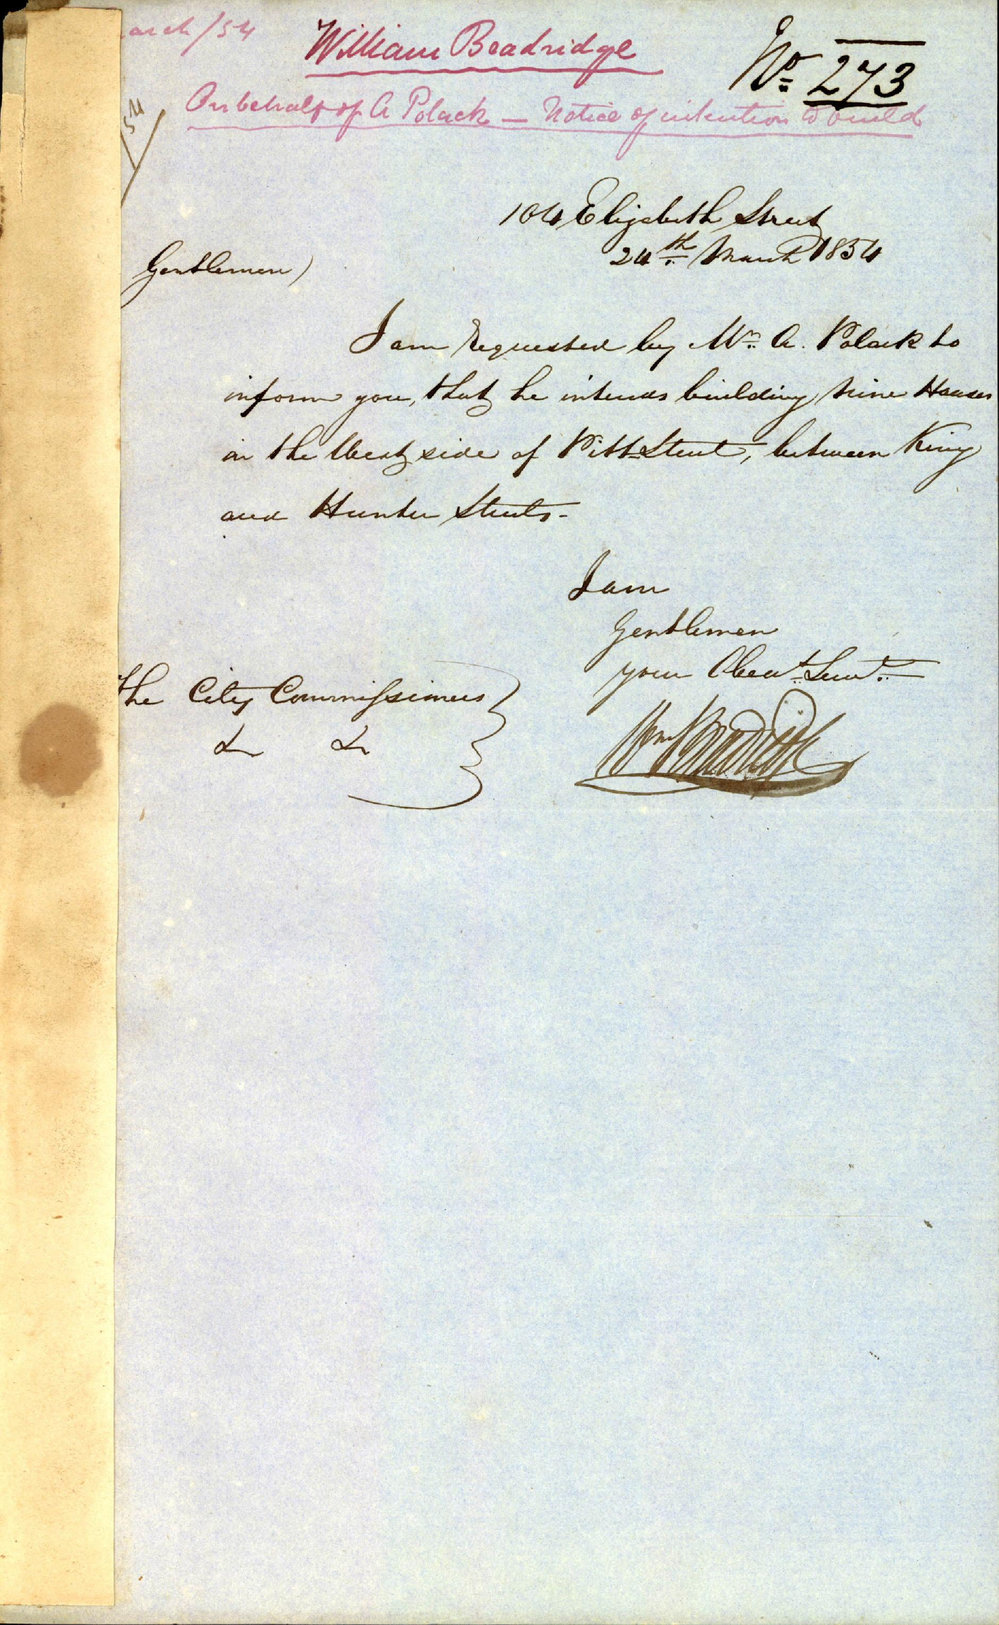 arch/54
William Boadridge
No. 273
On behalf of A Polack — Notice of intention to build
54
104 Elizabeth Street
24th. March 1854
Gentlemen,
I am requested by Mr. A. Polack to
inform you, that he intends building nine Houses
on the West side of Pitt Street, between King
and Hunter Streets.
I am
Gentlemen
your Obedt. Servt.
Wm Boadridge
The City Commissioners
&c &c